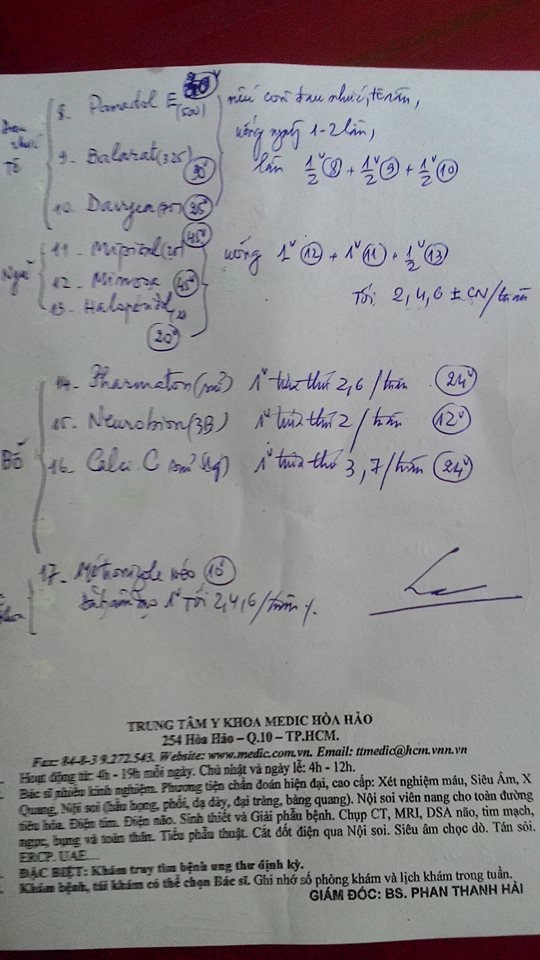 8. Panadol E (500)
nếu còn đau nhức, tê rần,
uống ngày 1-2 lần,
9. Balarat (325) 30v
lần 1/2v (8) + 1/2v (9) + 1/2v (10)
Tê
10. 25v
45v
Ngủ
11.
uống 1v (12) + 1v (11) + 1/2v (13)
12. Mimoza 45v
13.
Tối 2, 4, 6 ± CN / tuần
20v
14. Pharmaton 1v trưa thứ 2, 6 / tuần 24v
Bổ
15. Neurobion (3B) 1v trưa thứ 2 / tuần 12v
16. Calci C 1v trưa thứ 3, 7 / tuần 24v
17. 10v
Đặt âm đạo 1v Tối 2, 4, 6 / tuần
TRUNG TÂM Y KHOA MEDIC HÒA HẢO
254 Hòa Hảo – Q.10 – TP.HCM.
Fax: 84-8-3 9.272.543. Website: www.medic.com.vn. Email: ttmedic@hcm.vnn.vn
Hoạt động từ: 4h - 19h mỗi ngày. Chủ nhật và ngày lễ: 4h - 12h.
Bác sĩ nhiều kinh nghiệm. Phương tiện chẩn đoán hiện đại, cao cấp: Xét nghiệm máu, Siêu Âm, X
Quang, Nội soi (hầu họng, phổi, dạ dày, đại tràng, bàng quang). Nội soi viên nang cho toàn đường
tiêu hóa. Điện tim. Điện não. Sinh thiết và Giải phẫu bệnh. Chụp CT, MRI, DSA não, tim mạch,
ngực, bụng và toàn thân. Tiểu phẫu thuật. Cắt đốt điện qua Nội soi. Siêu âm chọc dò. Tán sỏi.
ERCP. UAE....
ĐẶC BIỆT: Khám truy tìm bệnh ung thư định kỳ.
Khám bệnh, tái khám có thể chọn Bác sĩ. Ghi nhớ số phòng khám và lịch khám trong tuần.
GIÁM ĐỐC: BS. PHAN THANH HẢI